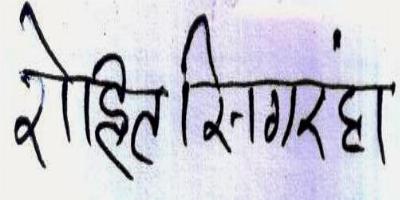 रोहित सिगरंहा